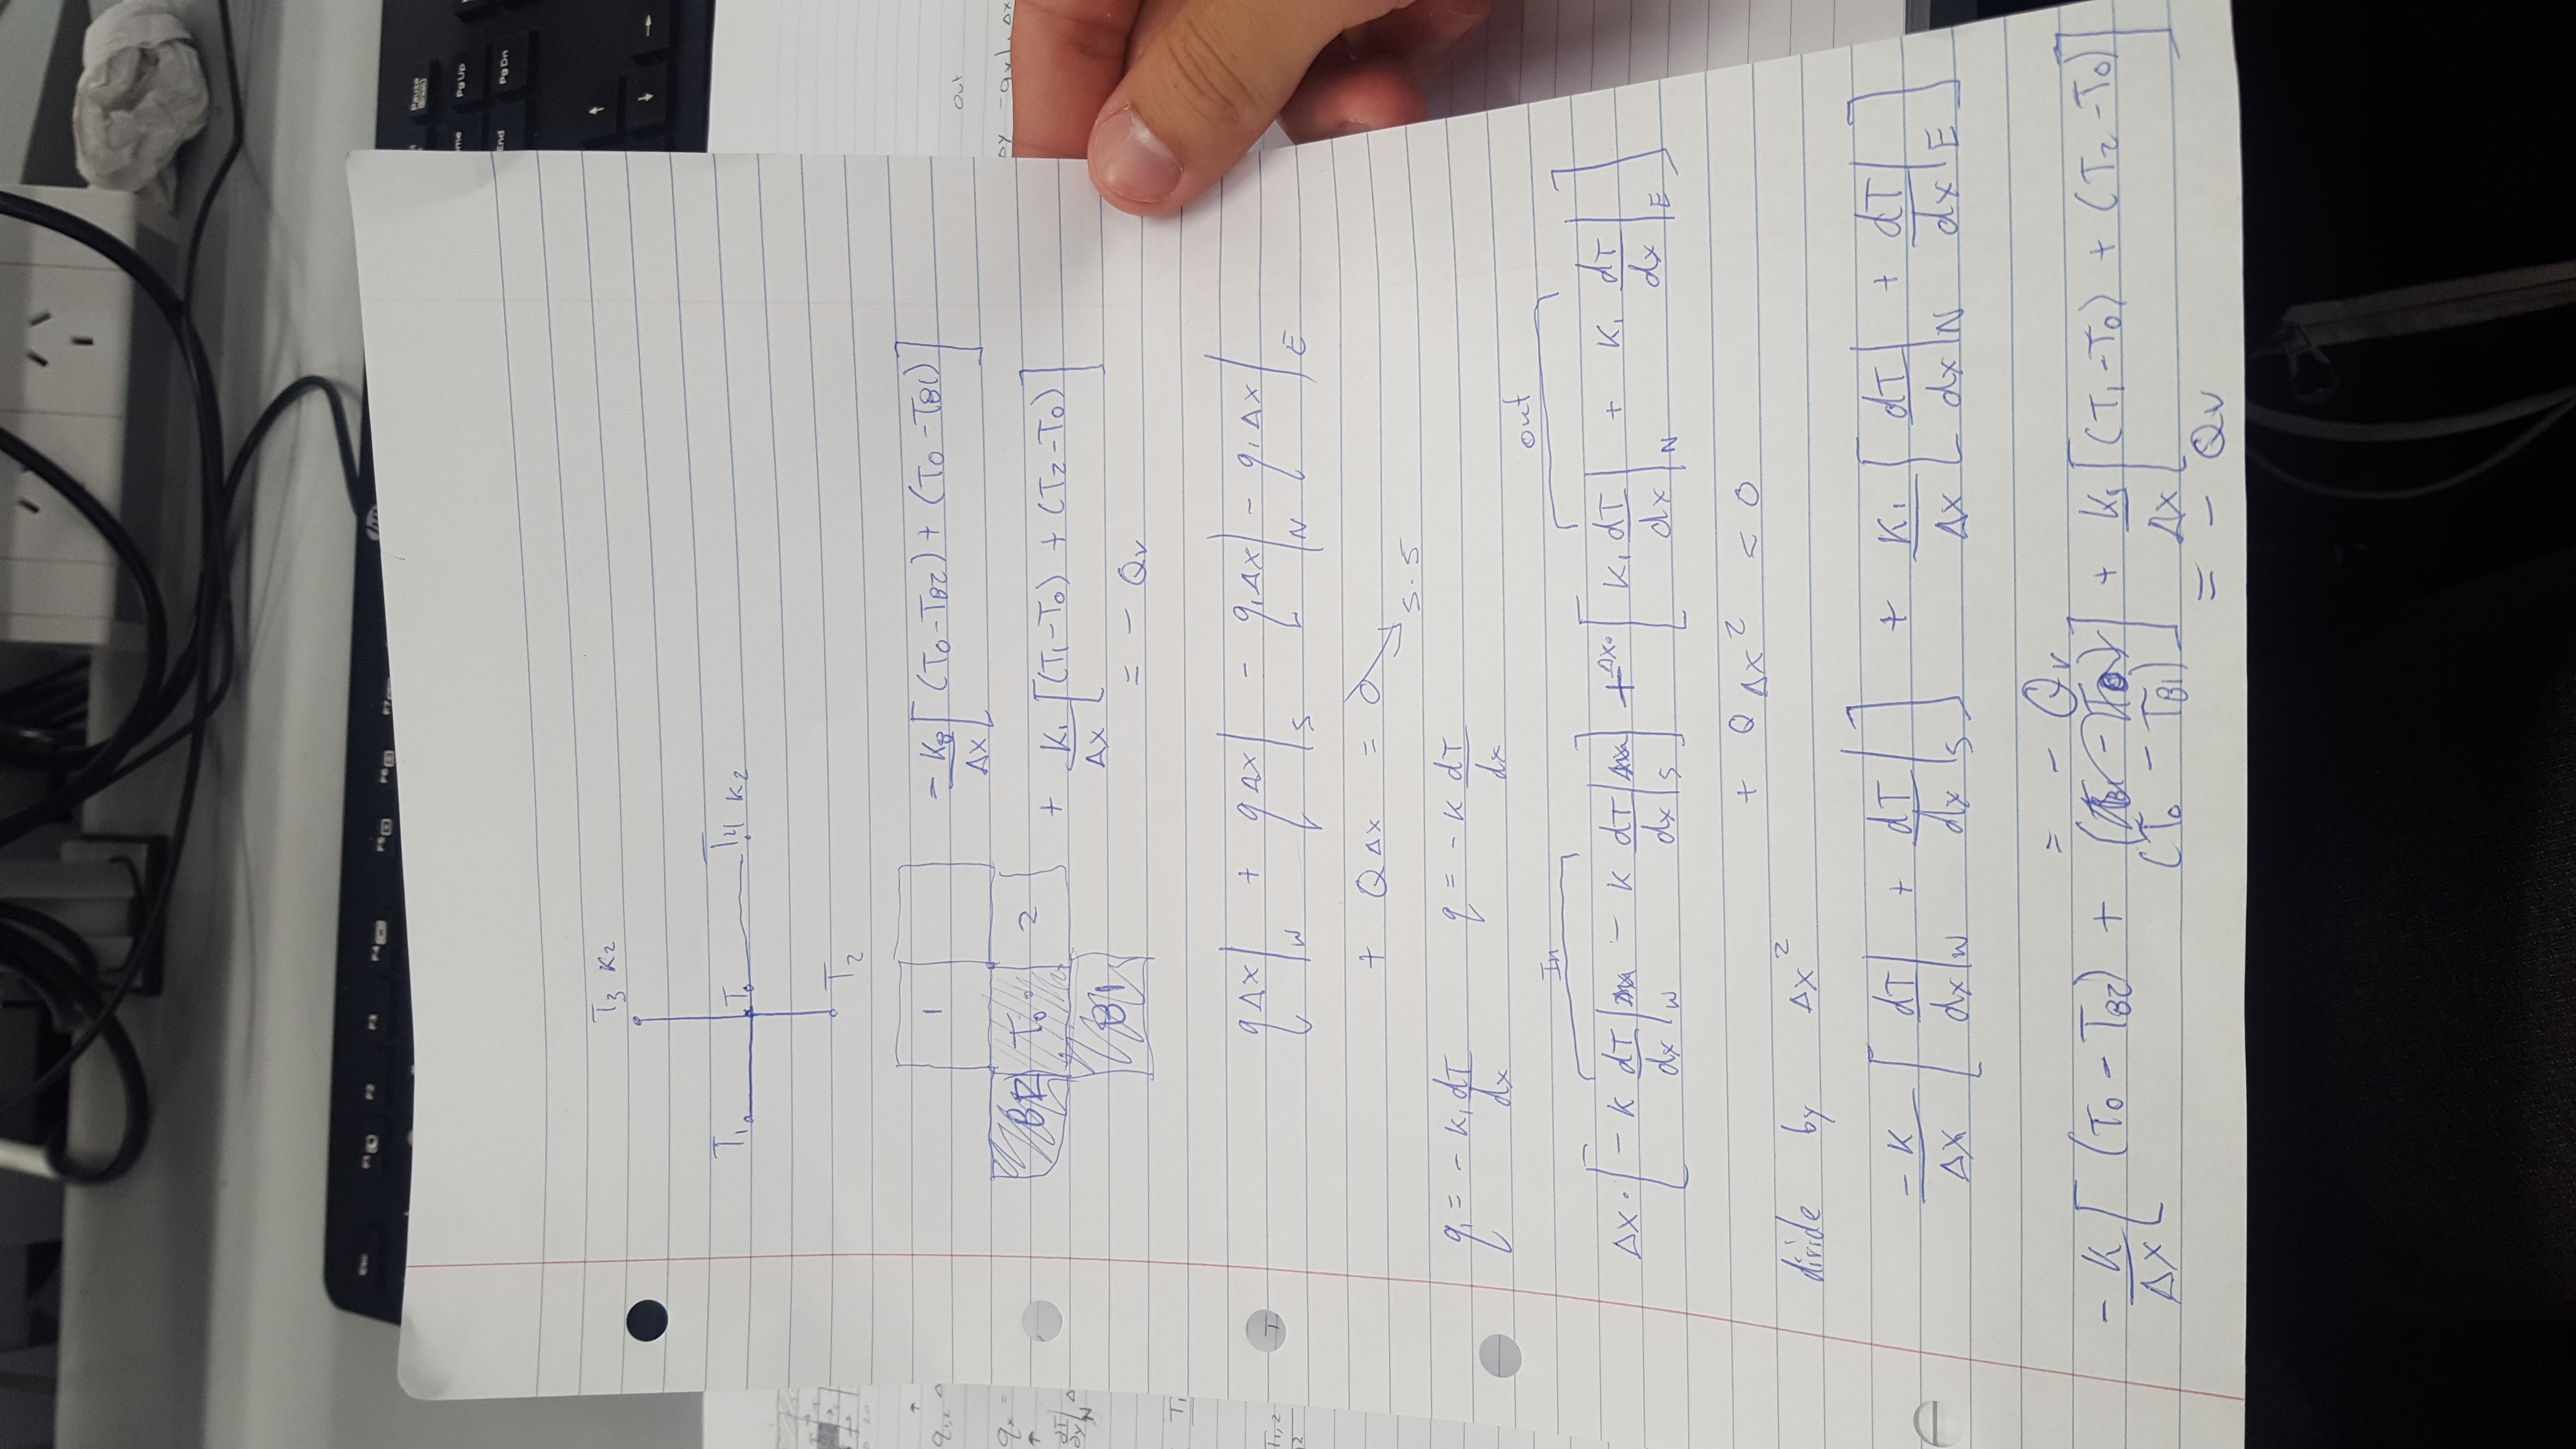 Esc F1 F2 F3 F4 F5 F6 F7 hp
Pause
Break
PgUp
End PgDn
T3 K2
T1 T0 T4 K2
T2
1
B2 T0 2
B1
-KB/Δx [(T0-TB2) + (T0-TB1)]
+ K1/Δx [(T1-T0) + (T2-T0)]
= - Qv
qΔx|W + qΔx|S - q1Δx|N - q1Δx|E
+ QΔx = 0 → S.S
q1 = -K1 dT/dx q = -K dT/dx
In out
Δx·[-K dT/dx|W - K dT/dx|S] + Δx·[K1 dT/dx|N + K1 dT/dx|E]
+ QΔx² = 0
divide by Δx²
-K/Δx [dT/dx|W + dT/dx|S] + K1/Δx [dT/dx|N + dT/dx|E]
= - Qv
-K/Δx [(T0-TB2) + (T0-TB1)] + K1/Δx [(T1-T0) + (T2-T0)]
= - Qv
out